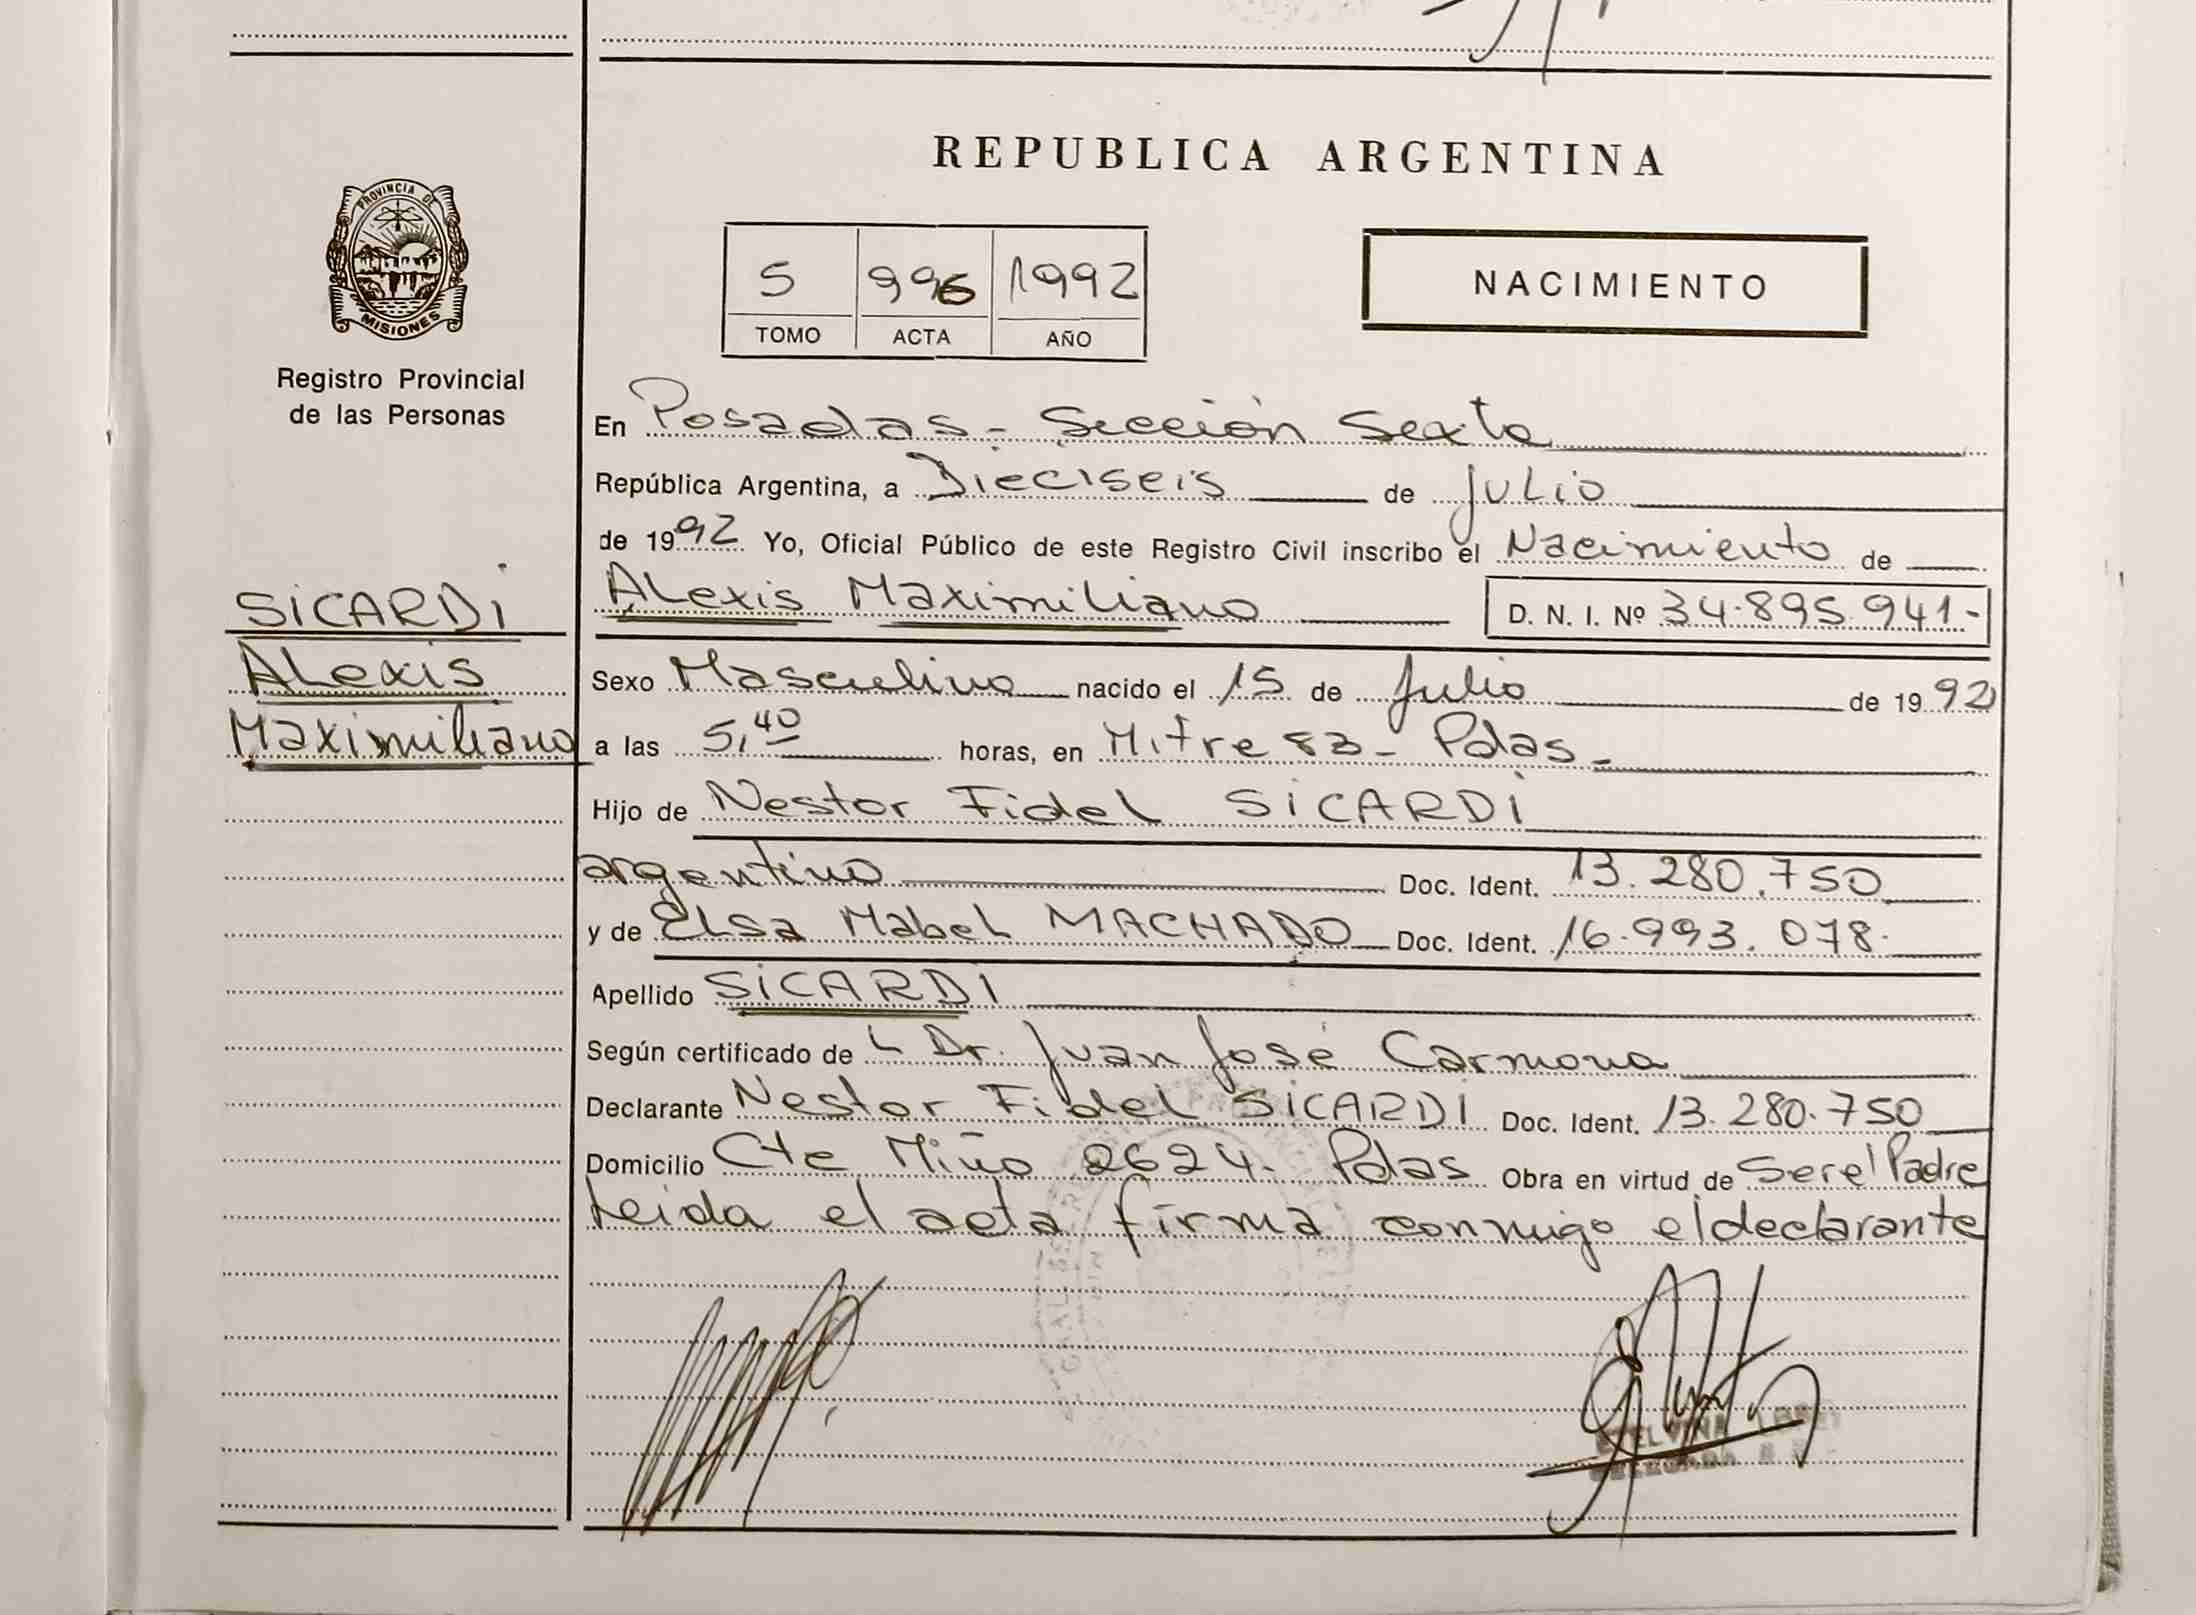 PROVINCIA DE
MISIONES
Registro Provincial
de las Personas
SICARDI
ALexis
Maximiliano
REPUBLICA ARGENTINA
5 996 1992
TOMO ACTA AÑO
NACIMIENTO
En Posadas - Sección Sexta
República Argentina, a Dieciseis de JULio
de 1992 Yo, Oficial Público de este Registro Civil inscribo el Nacimiento de
ALexis Maximiliano D. N. I. Nº 34.895.941.-
Sexo Masculino nacido el 15 de Julio de 1992
a las 5,40 horas, en Mitre 83 - Pdas -
Hijo de Nestor Fidel SICARDI
argentino Doc. Ident. 13.280.750
y de ELsa Mabel MACHADO Doc. Ident. 16.993.078.
Apellido SICARDI
Según certificado de L Dr. Juan José Carmona
Declarante Nestor Fidel SICARDI Doc. Ident. 13.280.750
Domicilio Cte Miño 2624. Pdas Obra en virtud de Ser el Padre
Leida el acta firma conmigo el declarante